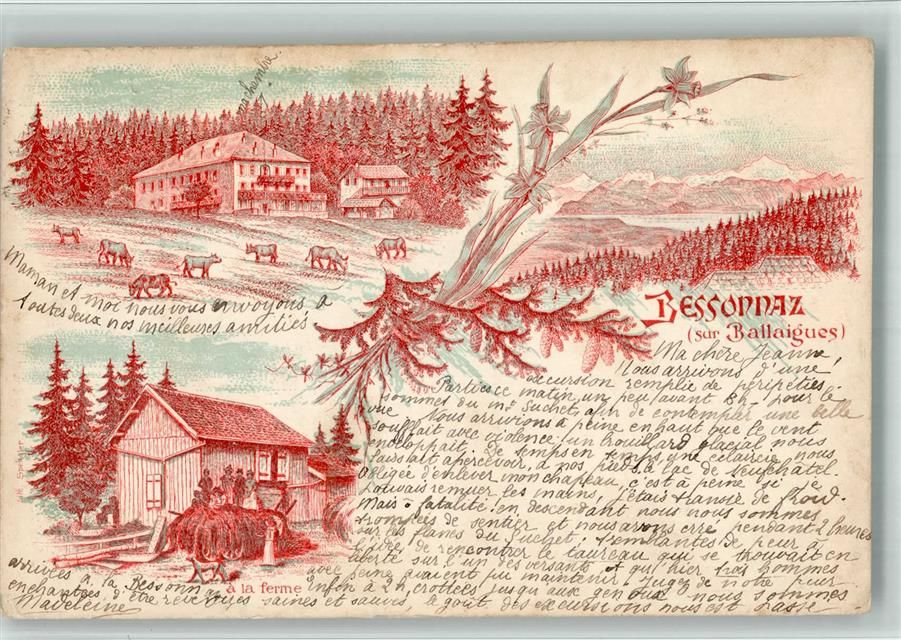 ma chambre.
Maman et moi nous vous envoyons, à
toutes deux nos meilleures amitiés
Bessonnaz
(sur Ballaigues)
Ma chère Jeanne,
Nous arrivons d'une
excursion remplie de péripéties.
Parties ce matin, un peu avant 8h. pour le
sommet du mt Suchet, afin de contempler une belle
vue. Nous arrivions à peine en haut que le vent
soufflait avec violence; un brouillard glacial nous
enveloppait. De temps en temps une éclaircie nous
laissait apercevoir, à nos pieds, le lac de Neuchâtel.
Obligée d'enlever mon chapeau, c'est à peine si je
pouvais remuer les mains, j'étais transie de froid.
Mais, fatalité, en descendant nous nous sommes
trompées de sentier et nous avons erré pendant 2 heures
sur les flancs du Suchet, tremblantes de peur à
l'idée de rencontrer le taureau qui se trouvait en
liberté sur l'un des versants et qu'hier trois hommes
avec peine avaient pu maintenir. Jugez de notre peur.
Enfin à 2h, crottées jusqu'aux genoux nous sommes
arrivées à la Bessonnaz
enchantées d'être revenues saines et sauves, le goût des excursions nous est passé
Madeleine
à la ferme